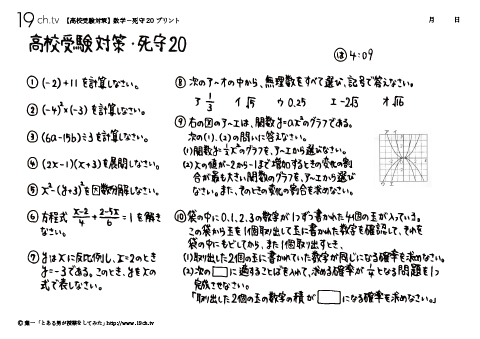 19ch.tv 【高校受験対策】数学－死守20プリント 月 日
高校受験対策・死守20
㊙ 4:09
① (-2)+11 を計算しなさい。
② (-4)²×(-3) を計算しなさい。
③ (6a-15b)÷3 を計算しなさい。
④ (2x-1)(x+3) を展開しなさい。
⑤ x²-(y+3)² を因数分解しなさい。
⑥ 方程式 x-2/4 + 2-5x/6 = 1 を解き
なさい。
⑦ yはxに反比例し、x=2のとき
y=-3である。このとき、yをxの
式で表しなさい。
⑧ 次のア~オの中から、無理数をすべて選び、記号で答えなさい。
ア 1/3 イ √5 ウ 0.25 エ -2√3 オ √16
⑨ 右の図のア~エは、関数y=ax²のグラフである。
次の(1)、(2)の問いに答えなさい。
(1) 関数y=½x²のグラフを、ア~エから選びなさい。
(2) xの値が-2から-1まで増加するときの変化の割
合が最も大きい関数のグラフを、ア~エから選び
なさい。また、そのときの変化の割合を求めなさい。
ア イ
ウ エ
⑩ 袋の中に0、1、2、3の数字が1つずつ書かれた4個の玉が入っている。
この袋から玉を1個取り出して玉に書かれた数字を確認して、それを
袋の中にもどしてから、また1個取り出すとき、
(1) 取り出した2個の玉に書かれていた数字が同じになる確率を求めなさい。
(2) 次の□に適することばを入れて、求める確率が¼となる問題を1つ
完成させなさい。
「取り出した2個の玉の数字の積が□になる確率を求めなさい。」
© 葉一 「とある男が授業をしてみた」 http://www.19ch.tv